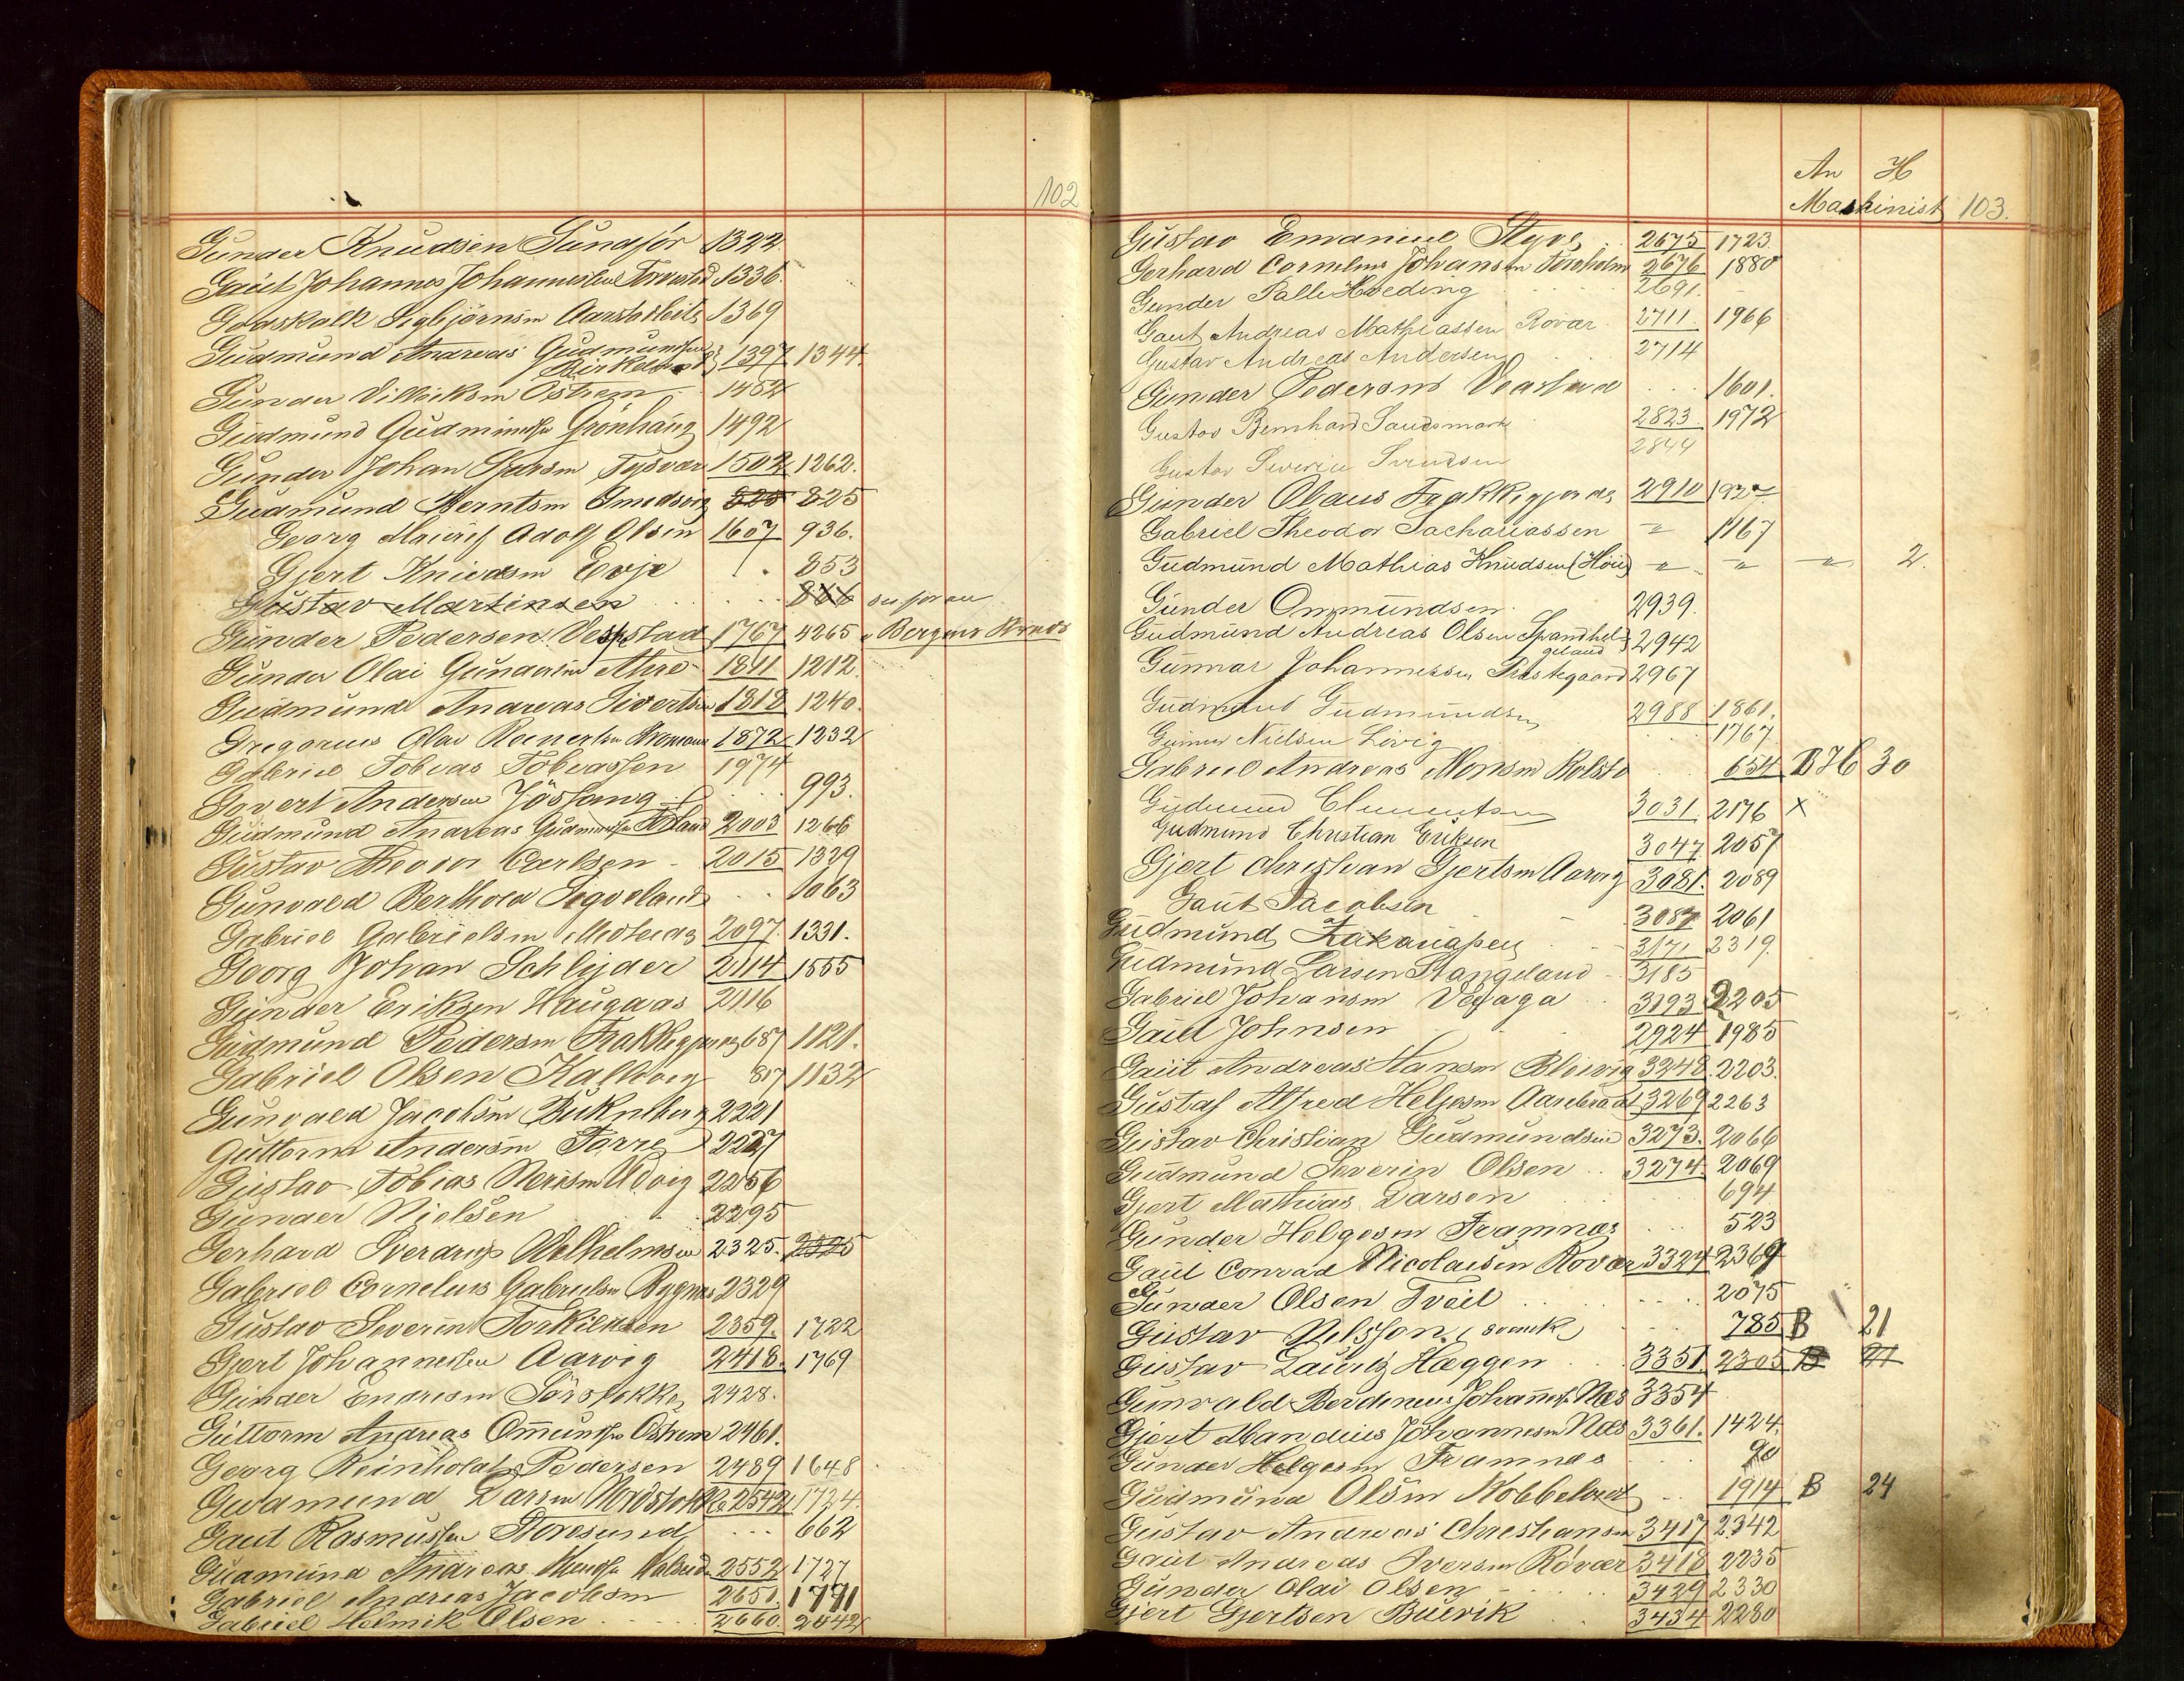 102
Gunder Knudsen Sundför 1322
Gaut Johannes Johannessen Torvestad 1336.
Godskalk Sigbjörnsen 1369
Gudmund Andreas Gudmundsen 1397 1344.
Birkeland
Gunder Villiksen Östrem 1454
Gudmund Gudmundsen Grönhaug 1492
Gunder Johan Tysvær 1502 1262.
Gudmund Berntsen Smedsvig 825 825
Georg Adolf Olsen 1607 936.
Gjert Knudsen Evje 853
Gustav Martinsen 866
Gunder Pedersen Vestad 1767 4265 Bergens Kreds
Gunder Olai Gundersen 1811 1212.
Gudmund Andreas Sivertsen 1818 1240.
Gregorius Olai 1872 1232
Gabriel Tobias Tobiassen 1974
Govert Andersen Jössang 993.
Gudmund Andreas Gudmundsen 2003 1266
Gustav Theodor Carlsen 2015 1329
Gunvald Berthold Segveland 1063
Gabriel Gabrielsen 2097 1331.
Georg Johan Schlyder 2114 1555
Gunder Eriksen Haugaas 2116
Gudmund Pedersen 687 1121.
Gabriel Olsen Kallevig 817 1132
Gunvald Jacobsen 2221
Guttorm Andersen Førre 2227
Gustav Tobias Udvig 2256
Gunder Nielsen 2295
Gerhard Sverdrup Wilhelmsen 2325. 2325
Gabriel Cornelius Gabrielsen Bygnes 2329
Gustav Severin Torkildsen 2359. 1722
Gjert Johannessen Aarvig 2418. 1769
Gunder Endresen Sörstokke 2428.
Guttorm Andreas Omundsen Östrem 2461.
Georg Reinholdt Pedersen 2489 1648
Gudmund Larsen 2542 1724.
Gaut Rasmussen Storesund 662
Gudmund Andreas 2552 1727
Gabriel Andreas Jacobsen 2651. 1771
Gabriel Helmik Olsen 2660. 2042
An H
Maskinist 103.
Gustav Emanuel Styve 2675 1723.
Gerhard Cornelius Johansen 2676 1880
Gunder Palle Hveding 2691.
Gaut Andreas Mathiassen Rovær 2711. 1966
Gustav Andreas Andersen 2714
Gunder Pedersen 1601.
Gustav Bernhard Sandsmark 2823. 1972
Gustav Severin Svendsen 2844
Gunder Olaus 2910
Gabriel Theodor Sachariassen " 1167
Gudmund Mathias Knudsen (Höie) " " " 2.
Gunder Ommundsen. 2939.
Gudmund Andreas Olsen 2942
Gunnar Johannessen Prestegaard 2967
Gudmund Gudmundsen 2988 1861.
Gunner Nielsen Lövig 1767
Gabriel Andreas Monsen Kolstø 654 B H 30
Gudmund Clementsen 3031. 2176 x
Gudmund Christian Eriksen 3047 2057
Gjert Christian Gjertsen Aarvig 3081. 2089
Gaut Jacobsen 3087 2061
Gudmund 3171 2319.
Gudmund Larsen Stangeland 3185
Gabriel Johansen 3193 2205
Gaut Johnsen 2924 1985
Gaut Andreas Hansen Bleivig 3248. 2203.
Gustaf Alfred Helgesen 3269 2263
Gustav Christian Gudmundsen 3273. 2066
Gudmund Severin Olsen 3274. 2069
Gjert Mathias Larsen 694
Gunder Helgesen Framnes 523
Gaut Conrad Nicolaisen Rovær 3324 2369
Gunder Olsen Tveit 2075
Gustav Nilsson (svensk) 785 B 21
Gustav Lauritz Hæggen 3351. 2305 B 21
Gunvald Berdineus Johannes. Næs 3354
Gjert Mandius Johannesen Næs 3361. 1424.
Gunder Helgesen Framnes 90
Gudmund Olsen Kobbeltvedt 1914 B 24
Gustav Andreas Christiansen 3417 2342
Gaut Andreas Iversen Rövær 3418 2235
Gunder Olai Olsen 3429 2330
Gjert Gjertsen Buevik 3434 2280